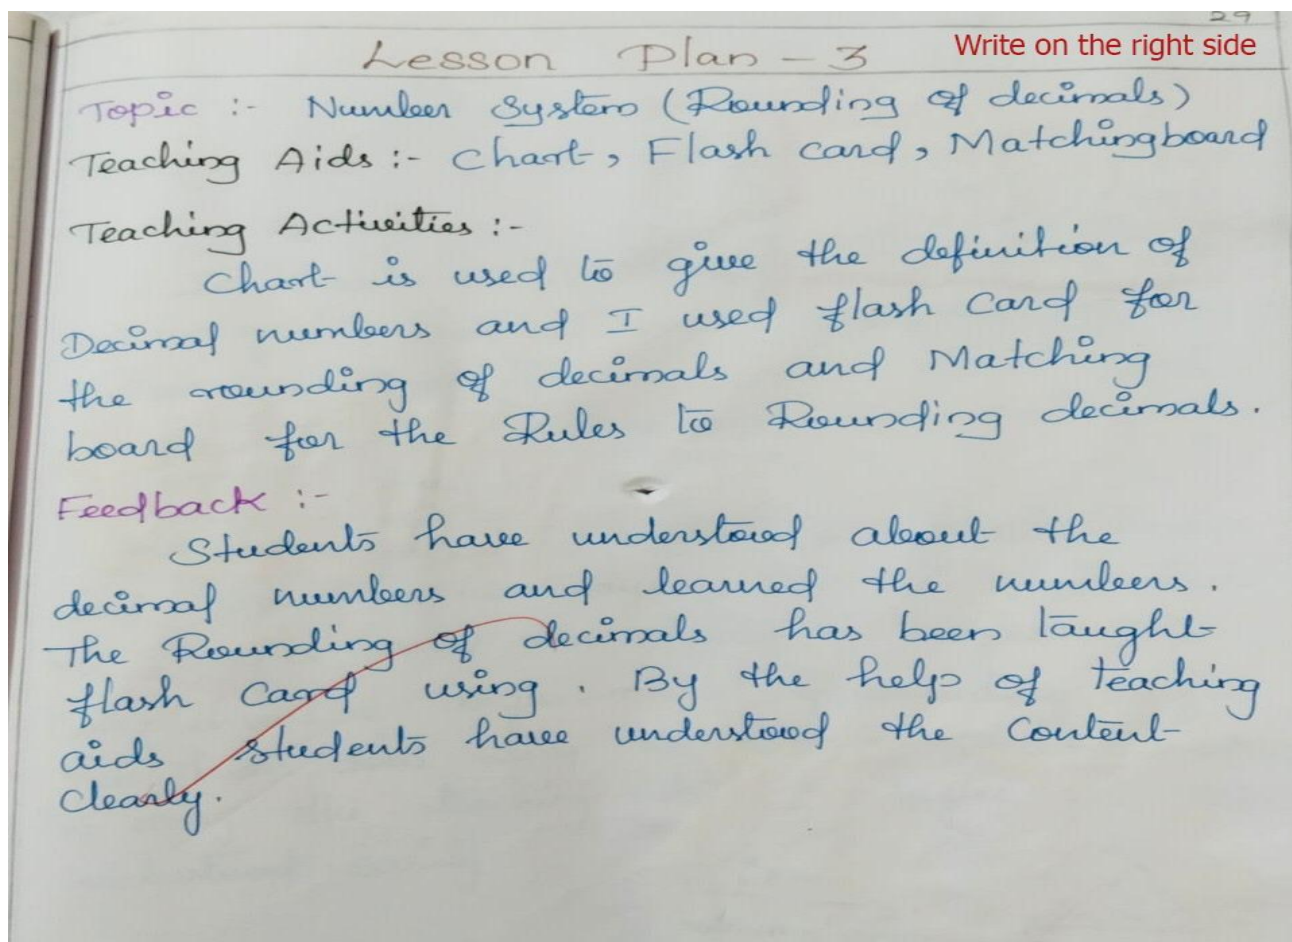 29
Lesson Plan - 3
Write on the right side
Topic :- Number System (Rounding of decimals)
Teaching Aids :- Chart, Flash card, Matchingboard
Teaching Activities :-
Chart is used to give the definition of
Decimal numbers and I used flash card for
the rounding of decimals and Matching
board for the Rules to Rounding decimals.
Feedback :-
Students have understood about the
decimal numbers and learned the numbers.
The Rounding of decimals has been taught
flash card using. By the help of teaching
aids students have understood the content
clearly.